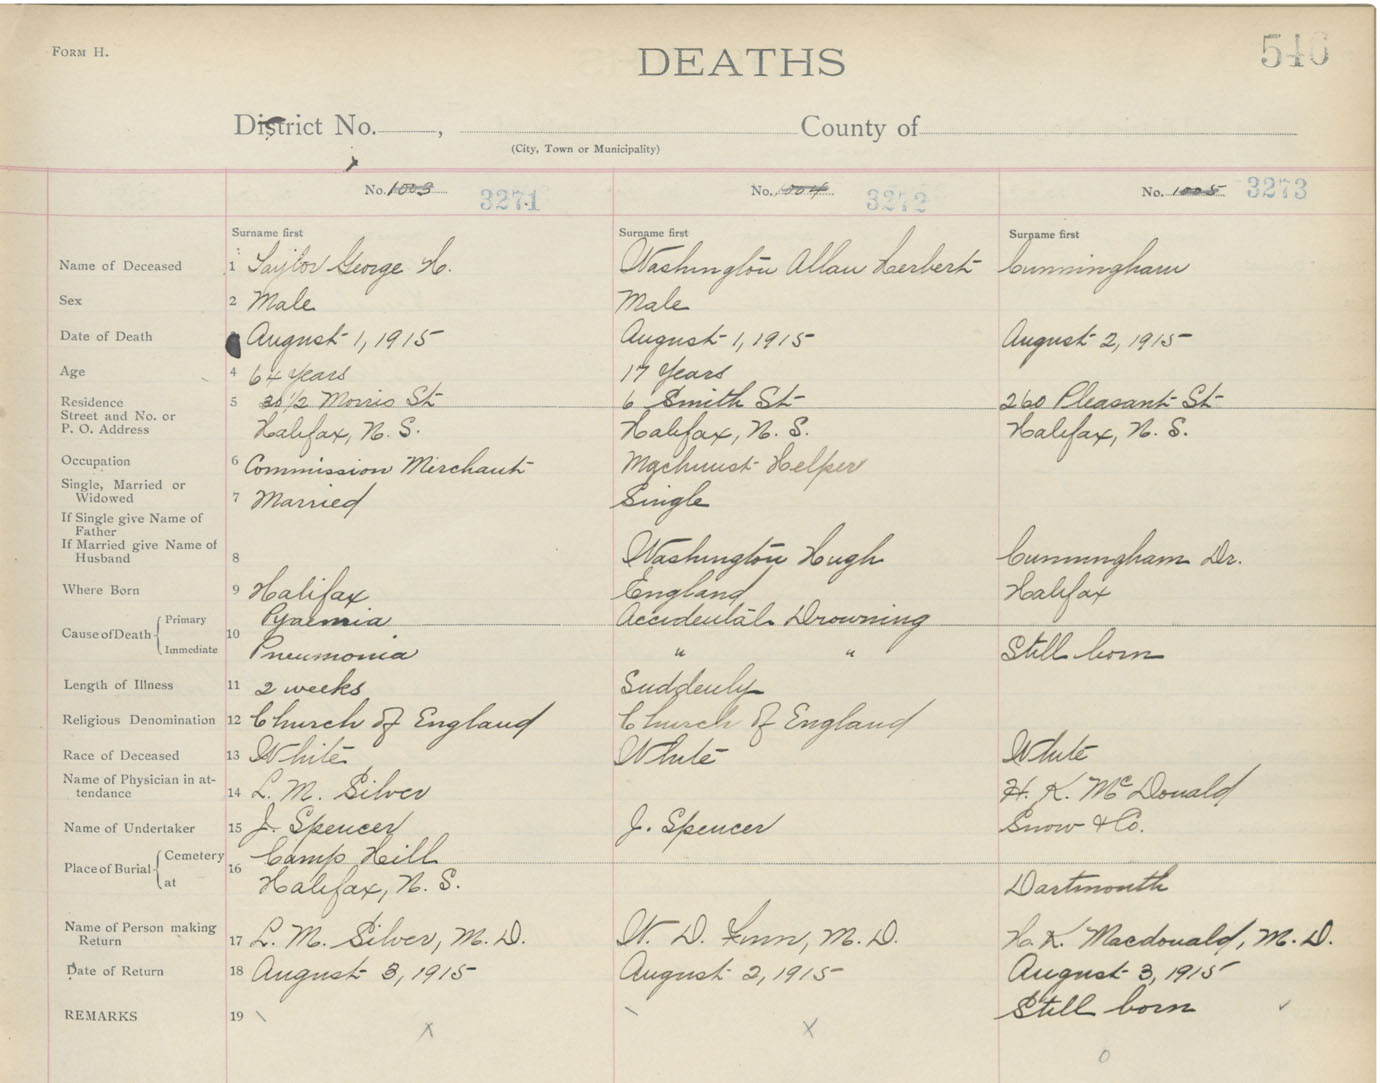 FORM H.
DEATHS
546
District No. , County of
(City, Town or Municipality)
No. 1003 3271 No. 1004 3272 No. 1005 3273
Surname first Surname first Surname first
Name of Deceased 1 Taylor George H. Washington Allan Herbert Cunningham
Sex 2 Male Male
Date of Death August 1, 1915 August 1, 1915 August 2, 1915
Age 4 64 years 17 Years
Residence 5 30 1/2 Morris St 6 Smith St 260 Pleasant St
Street and No. or
P. O. Address Halifax, N. S. Halifax, N. S. Halifax, N. S.
Occupation 6 Commission Merchant Machinist Helper
Single, Married or
Widowed 7 Married Single
If Single give Name of
Father
If Married give Name of
Husband 8 Washington Hugh Cunningham Dr.
Where Born 9 Halifax England Halifax
Cause of Death 10 Primary Pyaemia Accidental Drowning
Immediate Pneumonia " " Still born
Length of Illness 11 2 weeks Suddenly
Religious Denomination 12 Church of England Church of England
Race of Deceased 13 White White White
Name of Physician in at-
tendance 14 L. M. Silver H. K. McDonald
Name of Undertaker 15 J. Spencer J. Spencer Snow & Co.
Place of Burial 16 Cemetery Camp Hill
at Halifax, N. S. Dartmouth
Name of Person making
Return 17 L. M. Silver, M. D. W. D. Finn, M. D. H. K. Macdonald, M. D.
Date of Return 18 August 3, 1915 August 2, 1915 August 3, 1915
REMARKS 19 Still born
X X
0